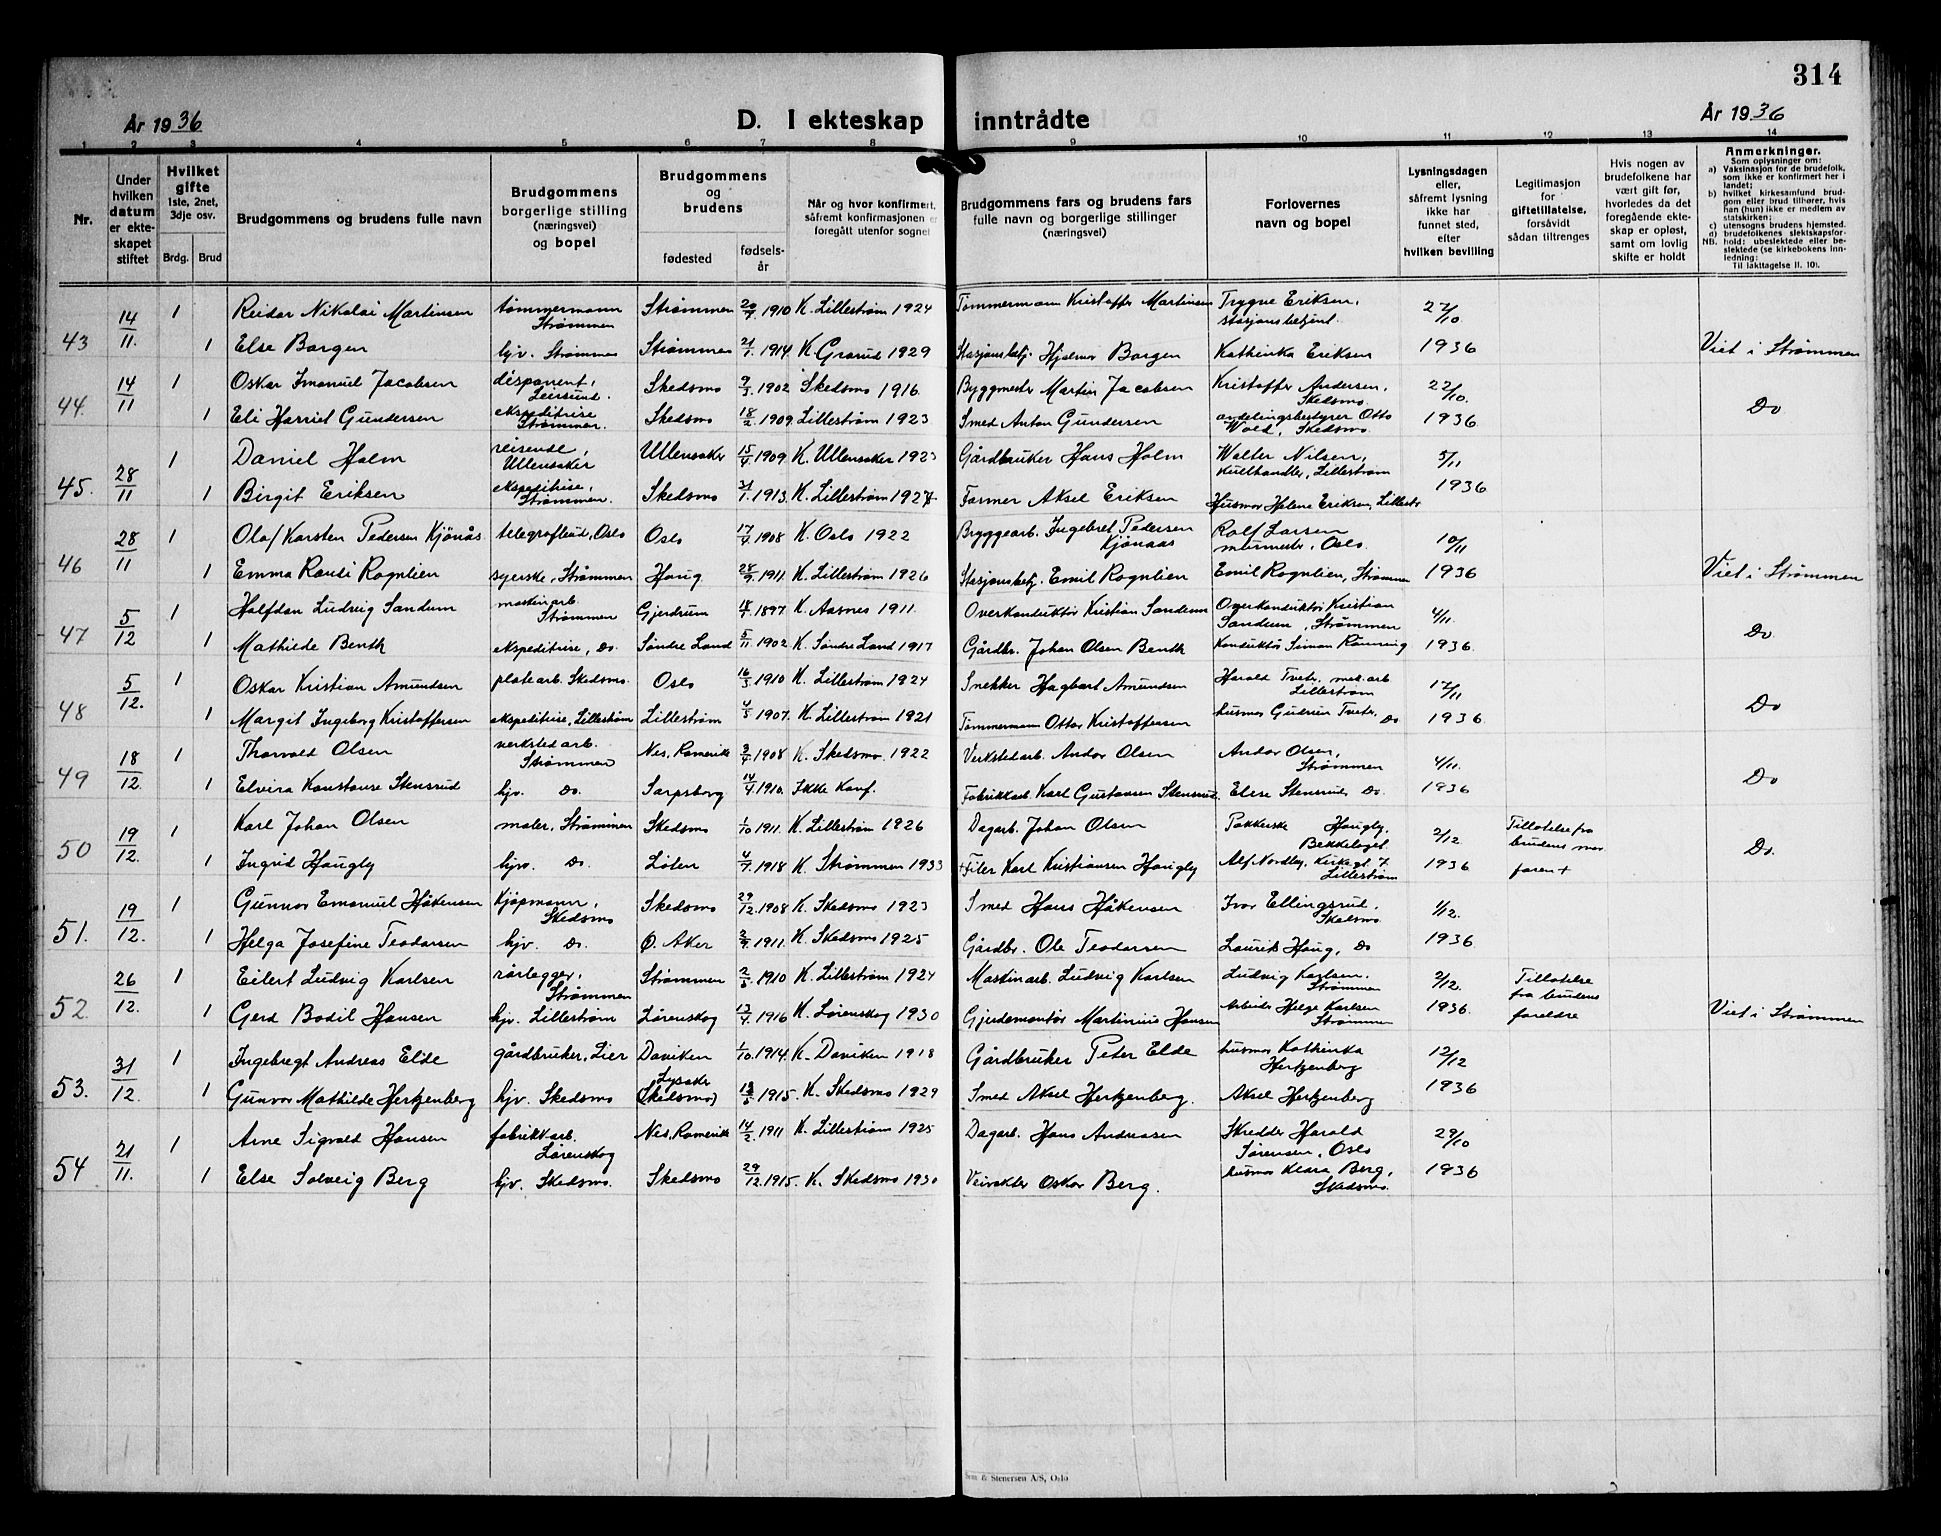 314
År 1936
D. I ekteskap inntrådte
År 1936
1 2 3 4 5 6 7 8 9 10 11 12 13 14
Nr.
Under hvilken datum er ekteskapet stiftet
Hvilket gifte 1ste, 2net, 3dje osv.
Brdg. Brud
Brudgommens og brudens fulle navn
Brudgommens borgerlige stilling (næringsvei) og bopel
Brudgommens og brudens
fødested
fødselsår
Når og hvor konfirmert, såfremt konfirmasjonen er foregått utenfor sognet
Brudgommens fars og brudens fars fulle navn og borgerlige stillinger (næringsvei)
Forlovernes navn og bopel
Lysningsdagen eller, såfremt lysning ikke har funnet sted, efter hvilken bevilling
Legitimasjon for giftetillatelse, forsåvidt sådan tiltrenges
Hvis nogen av brudefolkene har vært gift før, hvorledes da det foregående ekteskap er opløst, samt om lovlig skifte er holdt
Anmerkninger.
Som oplysninger om:
a) Vaksinasjon for de brudefolk, som ikke er konfirmert her i landet;
b) hvilket kirkesamfund brudgom eller brud tilhører, hvis han (hun) ikke er medlem av statskirken;
c) utensogns brudens hjemsted.
d) brudefolkenes slektskapsforhold: ubeslektede eller beslektede (se kirkebokens innledning:
NB. Til iakttagelse II. 10).
43 14/11. 1 Reidar Nikolai Martinsen tømmermann Strømmen Strømmen 1910 K. Lillestrøm 1924 Tømmermann Kristoffer Martinsen Trygve Eriksen, stasjonsbetjent. 27/10
1 Else Borgen hjv. Strømmen Strømmen 21/1 1914 K. Grorud 1929 Stasjonsbetj. Hjalmar Borgen Kathinka Eriksen 1936 Viet i Strømmen
44. 14/11 1 Oskar Imanuel Jacobsen disponent, Leirsund. Skedsmo 9/3 1902 Skedsmo 1916 Byggmester Martin Jacobsen Kristoffer Andersen, Skedsmo. 22/10.
1 Eli Harriet Gundersen ekspeditrise Strømmen. Skedsmo 18/2 1909. Lillestrøm 1923 Smed Anton Gundersen avdelingsbestyrer Otto Wold, Skedsmo 1936 Do
45. 28/11 1 Daniel Holm reisende, Ullensaker Ullensaker 15/4 1909. K. Ullensaker 1923 Gårdbruker Hans Holm Walter Nilsen, kullhandler, Lillestrøm 5/11
1 Birgit Eriksen ekspeditrise, Strømmen. Skedsmo 31/1 1913. K. Lillestrøm 1927 Farmer Aksel Eriksen Husmor Helene Eriksen, Lillestr 1936
46 28/11 1 Olaf Karsten Pedersen Kjönås telegrafbud, Oslo Oslo 17/4 1908 K. Oslo 1922 Bryggearb. Ingebret Pedersen Kjönaas Rolf Larsen murmester, Oslo. 10/11
1 Emma Randi Rognlien syerske, Strømmen Haug 28/9 1911. K. Lillestrøm 1926 Stasjonsbetj. Emil Rognlien Emil Rognlien, Strømmen 1936 Viet i Strømmen
47 5/12 1 Halfdan Ludvig Sandum maskinarb. Strømmen Gjerdrum 1897 K. Aasnes 1911. Overkonduktør Kristian Sandum Overkonduktør Kristian Sandum, Strømmen 4/11.
1 Mathilde Benth ekspeditrise, Do. Søndre Land 5/11 1902 K. Søndre Land 1917 Gårdbr. Johan Olsen Benth Konduktør Simon Rønning 1936. Do
48 5/12. 1 Oskar Kristian Amundsen platearb. Skedsmo. Oslo 16/3 1910 K. Lillestrøm 1924 Snekker Hagbart Amundsen Harald Tveter, mek. arb Lillestrøm 12/11
1 Margit Ingeborg Kristoffersen ekspeditrise, Lillestrøm Lillestrøm 4/5 1907. K. Lillestrøm 1921 Tømmermann Ottar Kristoffersen husmor Gudrun Tveter, Do 1936. Do
49 18/12. 1 Thorvald Olsen verkstedarb. Strømmen Nes, Romerike 3/4 1908 K. Skedsmo 1922 Verkstedarb. Andor Olsen Andor Olsen, Strømmen 4/11.
1 Elvira Konstanse Stensrud hjv. Do. Sarpsborg 14/4 1910. Ikke Konf. Fabrikkarb. Karl Gustavsen Stensrud. Elise Stensrud, Do. 1936 Do
50 19/12. 1 Karl Johan Olsen maler, Strømmen Skedsmo 1/10 1911. K. Lillestrøm 1926 Dagarb. Johan Olsen Pakkerske Haugly, Bekkelaget 2/12 Tillatelse fra brudens mor
1 Ingrid Haugly hjv. Do. Løten 1918 K. Strømmen 1933 + Filer Karl Kristiansen Haugly Alf Nordby, Kirkegt. 7 Lillestrøm 1936 faren + Do.
51. 19/12. 1 Gunnar Emanuel Håkensen Kjøpmann, Skedsmo Skedsmo 29/12. 1908 K. Skedsmo 1923 Smed Hans Håkensen Ivar Ellingsrud, Skedsmo. 1/12.
1 Helga Josefine Teodorsen hjv. Do. Ø. Aker 2/9 1911. K. Skedsmo 1925 Gårdbr. Ole Teodorsen Laurits Haug, Do 1936
52. 26/12. 1 Eilert Ludvig Karlsen rørlegger, Strømmen Strømmen 1910 K. Lillestrøm 1924 Maskinarb. Ludvig Karlsen Ludvig Karlsen, Strømmen 2/12. Tillatelse fra brudens foreldre
1 Gerd Bodil Hansen hjv. Lillestrøm Lørenskog 13/4 1916 K. Lørenskog 1930 Gjerdemontør Martinius Hansen Arbeider Helge Karlsen Strømmen 1936. Viet i Strømmen
53. 31/12. 1 Ingebregt Andreas Elde gårdbruker, Lier Daviken 1/10 1914 K. Daviken 1918 Gårdbruker Peter Elde husmor Kathinka Hertzenberg 12/12
1 Gunvor Mathilde Hertzenberg hjv. Skedsmo Lysaker (Skedsmo) 1915. K. Skedsmo 1929 Smed Aksel Hertzenberg. Aksel Hertzenberg 1936
54 21/11. 1 Arne Sigvald Hansen fabrikkarb. Lørenskog Nes, Romerike 14/2 1911 K. Lillestrøm 1925 Dagarb. Hans Andreasen Skredder Harald Sørensen, Oslo 29/10
1 Else Solveig Berg hjv. Skedsmo. Skedsmo 29/12. 1915. K. Skedsmo 1930 Veivokter Oskar Berg. husmor Klara Berg, Skedsmo. 1936
Sem & Stenersen A/S, Oslo